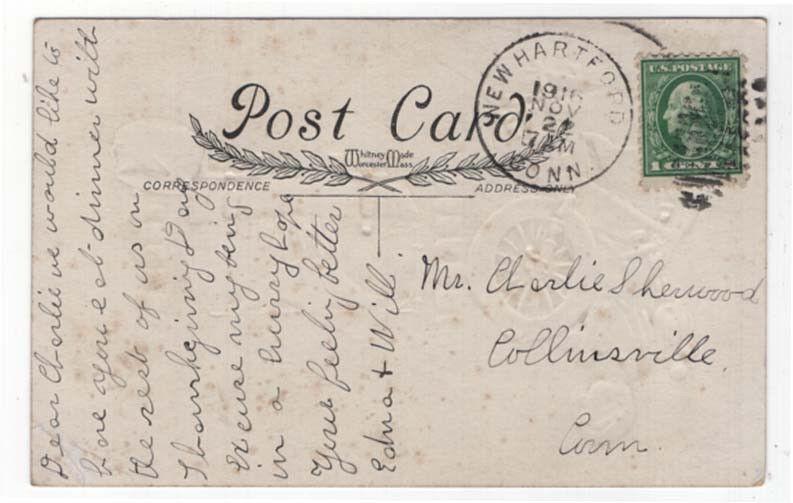 Post Card
Whitney Made
Worcester Mass.
CORRESPONDENCE
ADDRESS ONLY
NEW HARTFORD
NOV
2
M
CONN.
U.S. POSTAGE
1 CENT 1
Dear Charlie we would like to
have you eat dinner with
the rest of us on
Thanksgiving Day
Excuse my being
in a hurry hope
your feeling better
Edna + Will
Mr. Charlie Sherwood
Collinsville.
Conn.